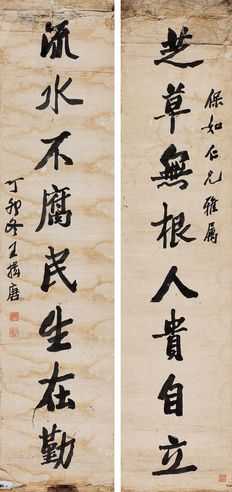 保如仁兄雅属
芝草無根人貴自立
流水不腐民生在勤
丁卯冬王揖唐